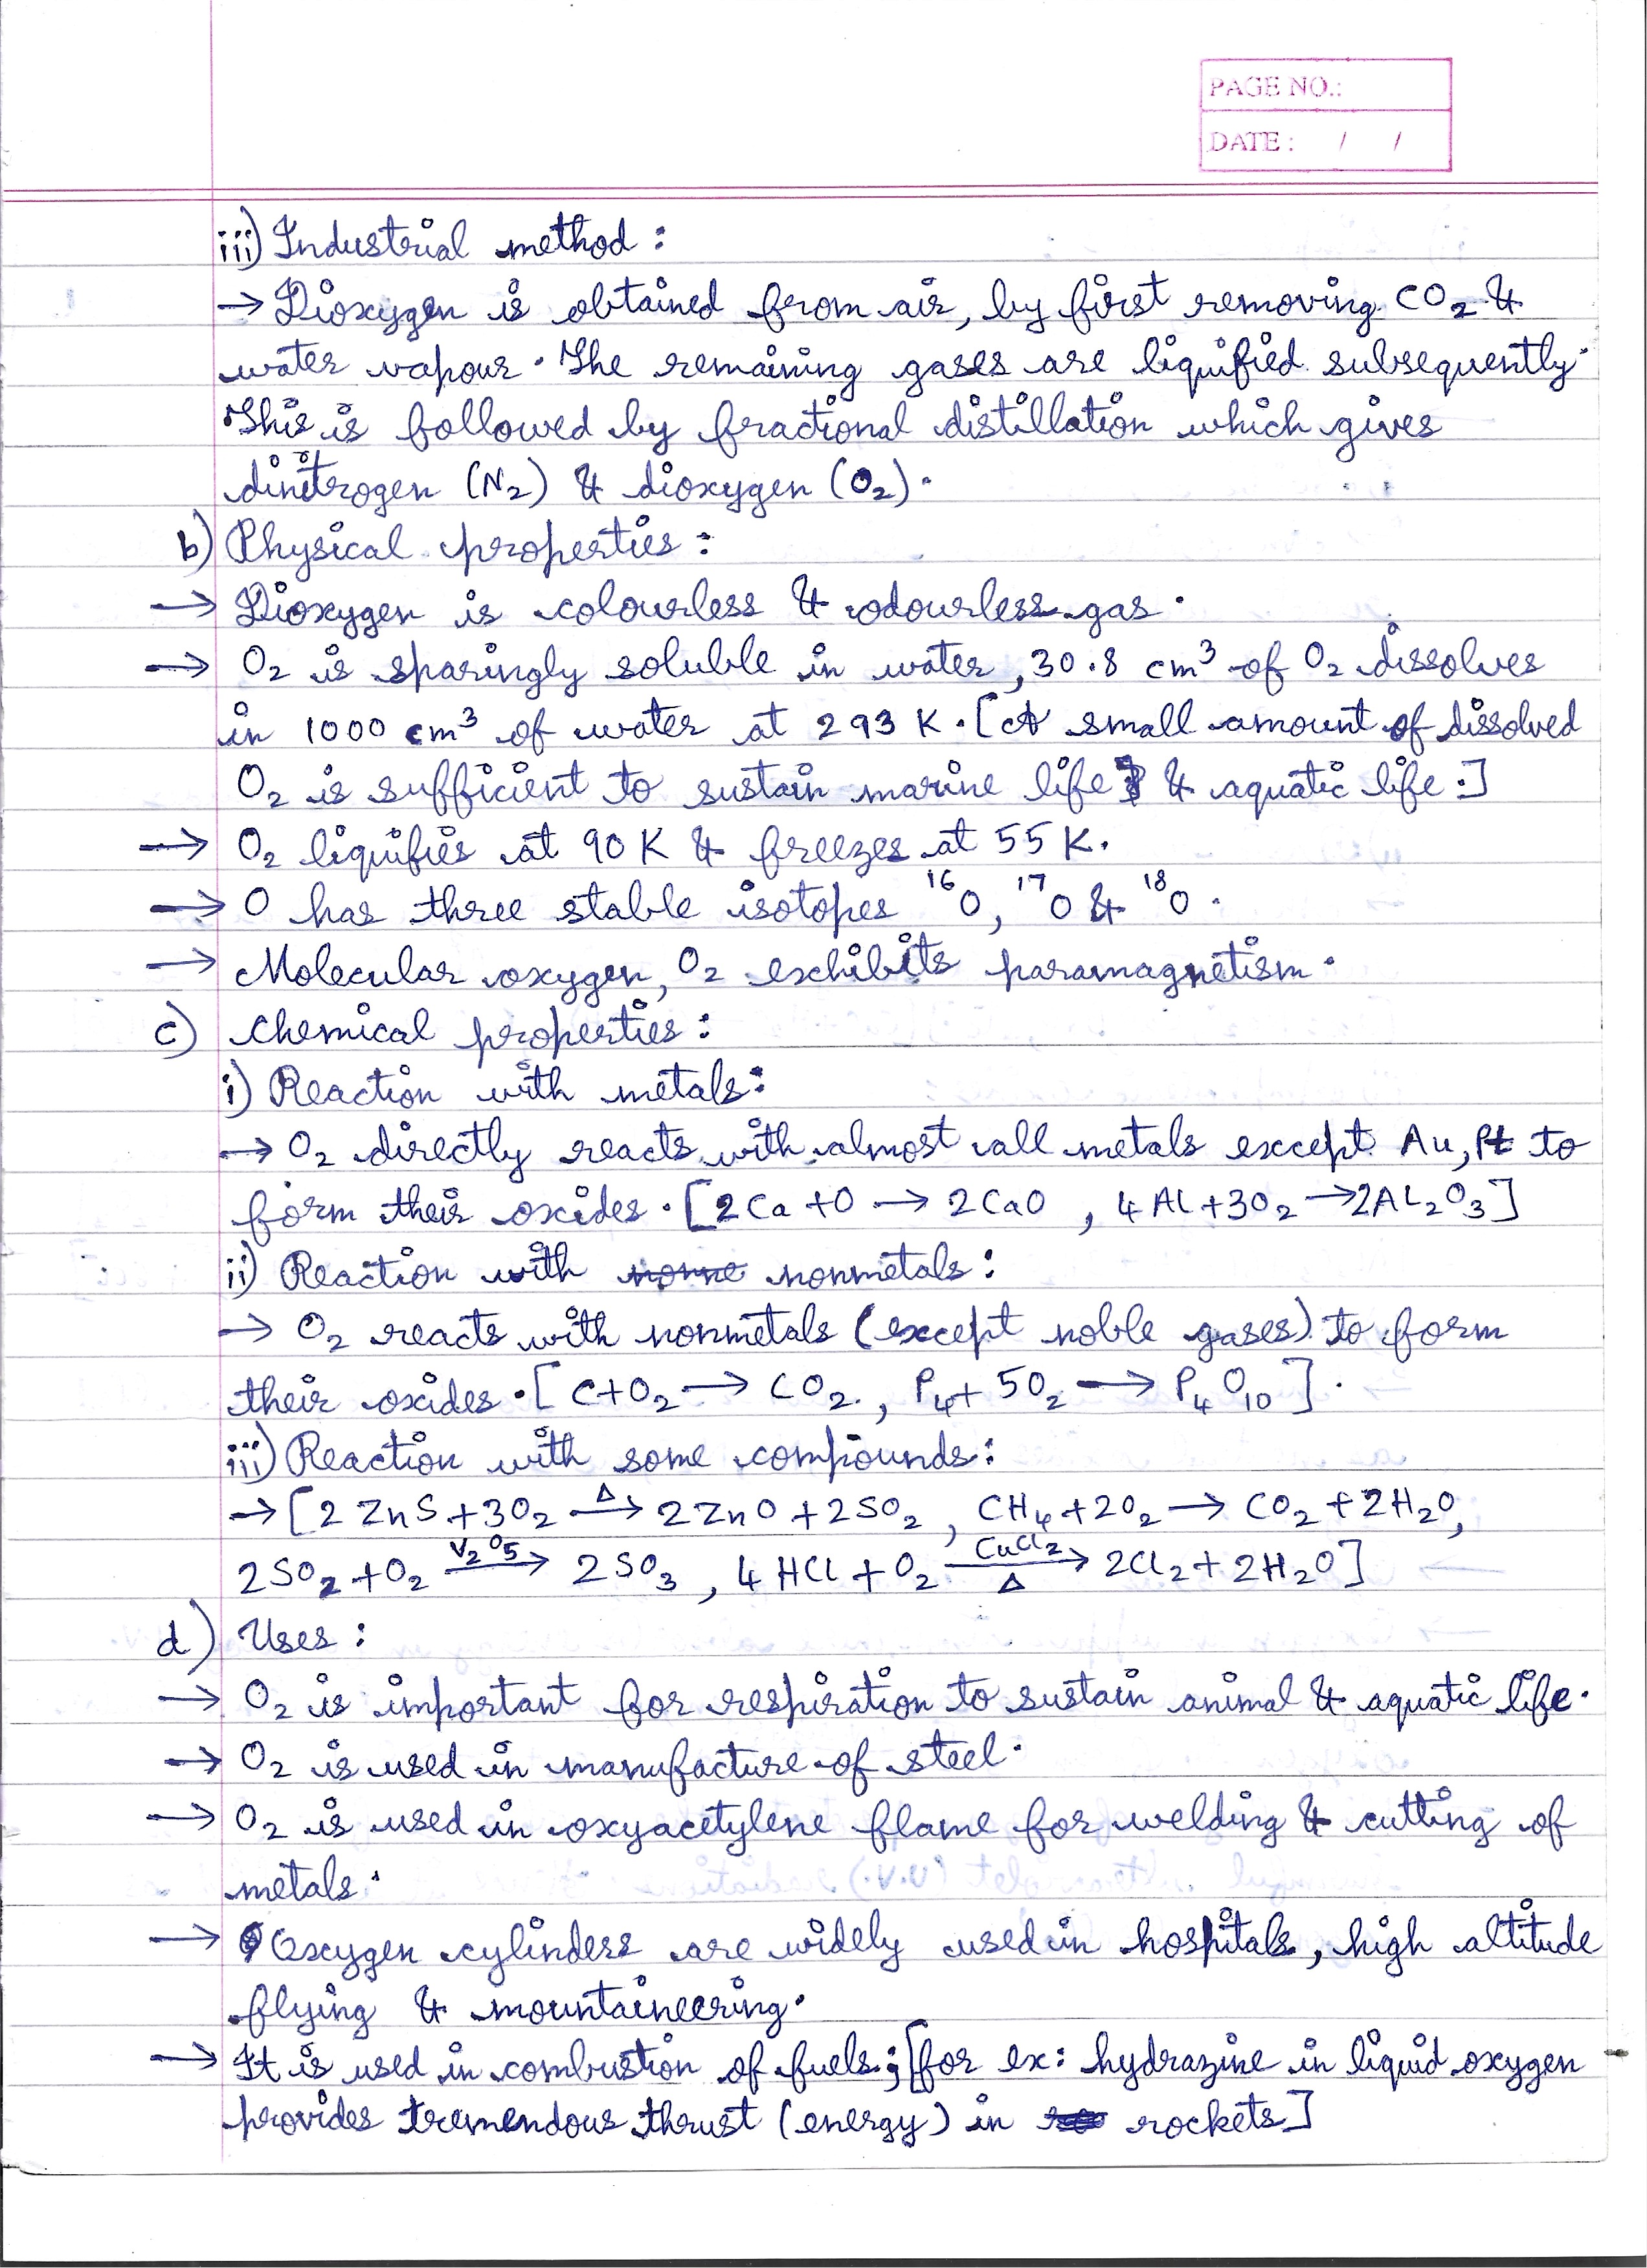 PAGE NO.:
DATE : / /
iii) Industrial method :
→ Dioxygen is obtained from air, by first removing CO₂ &
water vapour. The remaining gases are liquified subsequently.
This is followed by fractional distillation which gives
dinitrogen (N₂) & dioxygen (O₂).
b) Physical properties :
→ Dioxygen is colourless & odourless gas.
→ O₂ is sparingly soluble in water, 30.8 cm³ of O₂ dissolves
in 1000 cm³ of water at 293 K. [A small amount of dissolved
O₂ is sufficient to sustain marine life & aquatic life.]
→ O₂ liquifies at 90 K & freezes at 55 K.
→ O has three stable isotopes ¹⁶O, ¹⁷O & ¹⁸O.
→ Molecular oxygen, O₂ exhibits paramagnetism.
c) Chemical properties :
i) Reaction with metals :
→ O₂ directly reacts with almost all metals except Au, Pt to
form their oxides. [2Ca + O → 2CaO , 4Al + 3O₂ → 2Al₂O₃]
ii) Reaction with nonmetals :
→ O₂ reacts with nonmetals (except noble gases) to form
their oxides. [C + O₂ → CO₂. , P₄ + 5O₂ → P₄O₁₀].
iii) Reaction with some compounds :
→ [2ZnS + 3O₂ –Δ→ 2ZnO + 2SO₂ , CH₄ + 2O₂ → CO₂ + 2H₂O,
2SO₂ + O₂ –V₂O₅→ 2SO₃ , 4HCl + O₂ –CuCl₂/Δ→ 2Cl₂ + 2H₂O]
d) Uses :
→ O₂ is important for respiration to sustain animal & aquatic life.
→ O₂ is used in manufacture of steel.
→ O₂ is used in oxyacetylene flame for welding & cutting of
metals.
→ Oxygen cylinders are widely used in hospitals, high altitude
flying & mountaineering.
→ It is used in combustion of fuels ; [for ex : hydrazine in liquid oxygen
provides tremendous thrust (energy) in rockets]